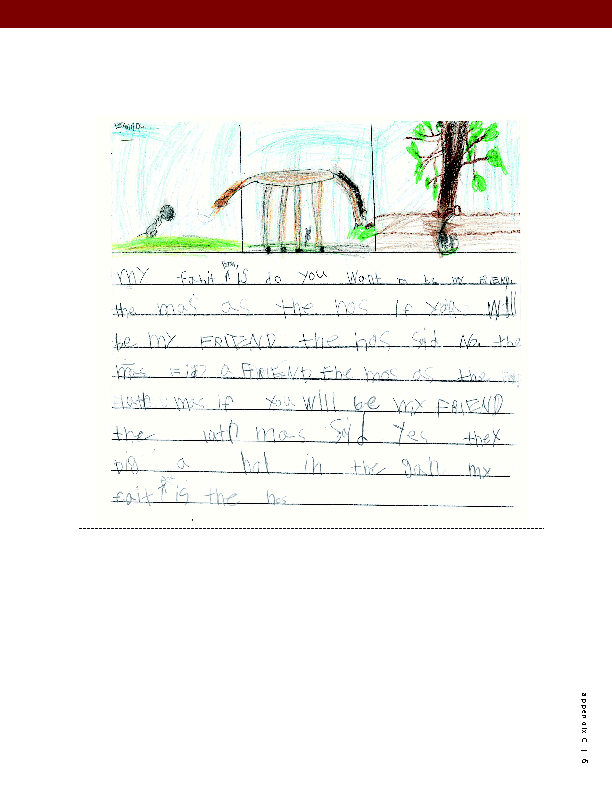 my fabit book is do you want to be my FRIEND
the mas as the hos if you Will
be my FRIEND the hos Sid No. the
mas FID a FRIEND the mos as the
mos if you will be my FRIEND
the latl mos Sid Yes thex
big a hol in the gan my
fait is the hos
appendix C | 6